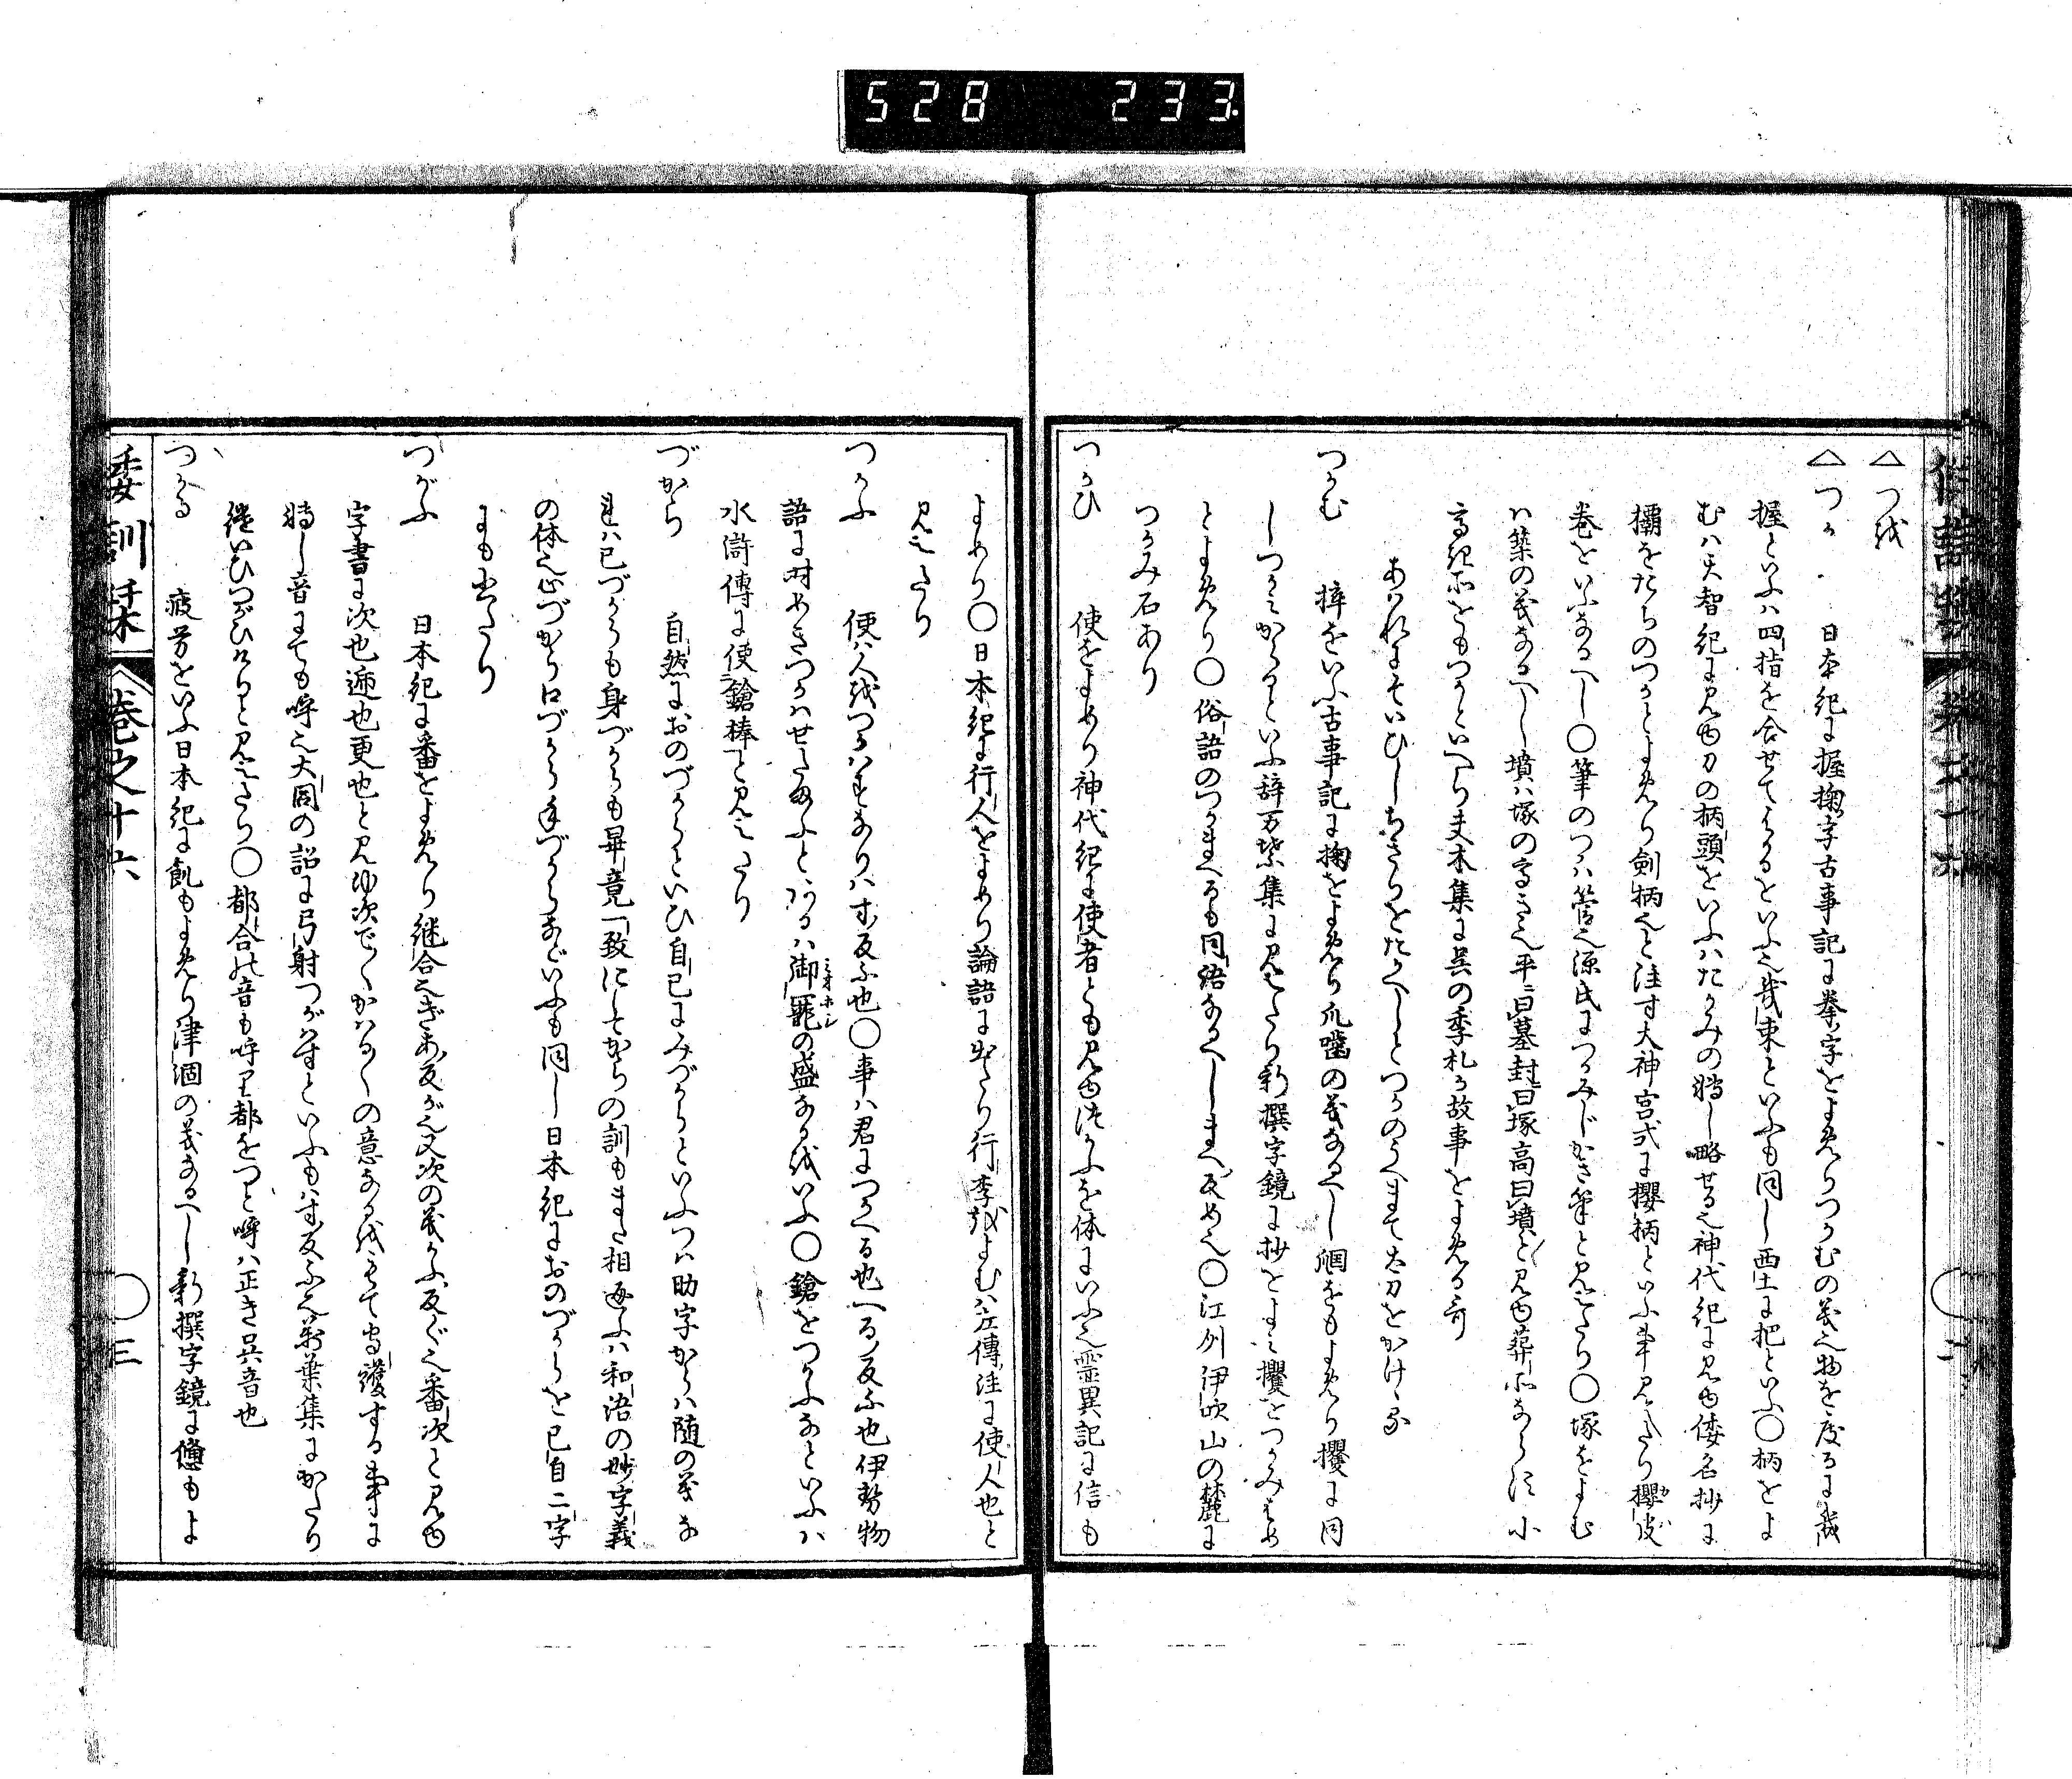 528 233.
△つ越
△つか 日本紀に握掬字古事記に拳字をよめりつかむの義也物を度るに幾
握といふハ四指を合せてはかるをいふ也幾束といふも同し西土に把といふ〇柄をよ
むハ天智紀に見ゆ刀の柄頭をいふハたかみの轉し略せる也神代紀に見ゆ倭名抄に
欛をたちのつかとよめり剣柄也と注す大神宮式に欛柄といふ事見えたり
巻をいふなるへし〇筆のつかハ管也源氏につかみじかき筆と見えたり〇塚をよむ
ハ築の義なるへし墳ハ塚の高き也平曰墓封曰塚高曰墳と見ゆ葬所ならす小
高き所をもつかといへり夫木集に呉の季札か故事をよめる哥
あハれにそいひしちきりをたかへしとつかのうへまて太刀をかけける
つかむ 捽をいふ古事記に掬をよめり爪噛の義なるへし摑をもよめり攫に同
しつミかかるといふ辞万葉集に見えたり新撰字鏡に抄をよミ攫をつかみはむ
とよめり〇俗語のつかまへるも同語なるへしまへ反め也〇江州伊吹山の麓に
つかみ石あり
つかひ 使をよめり神代紀に使者とも見ゆつかふを体にいふ也霊異記に信も
よめり〇日本紀に行人をよめり論語に出たり行李をよむハ左傳注に使人也と
見えたり
つかふ 使ハ人をつかハすなりハす反ふ也〇事ハ君につかへる也へる反ふ也伊勢物
語に時めきつかハせたまふとハ御寵の盛なるをいふ〇鎗をつかふなといふハ
水滸傳に使鎗棒と見えたり
づから 自然におのづからといひ自己にみづからといふつハ助字からハ随の義な
れハ已づからも身づからも畢竟一致にしてからの訓もまた相通ふハ和語の妙字義
の体也心づから口づから手づからなどいふも同し日本紀におのづからを已自二字
にも出たり
つがふ 日本紀に番をよめり継合也ぎあ反が也又次の義かふ反ぐ也番次と見ゆ
字書に次也逓也更也と見ゆ次でゝかハる〱の意なるをもて守護する事に
轉し音にても呼也大同の詔に弓射つがハすといふもハす反ふ也万葉集にかたり
継いひつがひけりと見えたり〇都合の音も呼り都をつと呼ハ正き呉音也
つかる 疲労をいふ日本紀に飢もよめり津涸の義なるへし新撰字鏡に憊もよ
倭訓栞 巻之十六 〇三